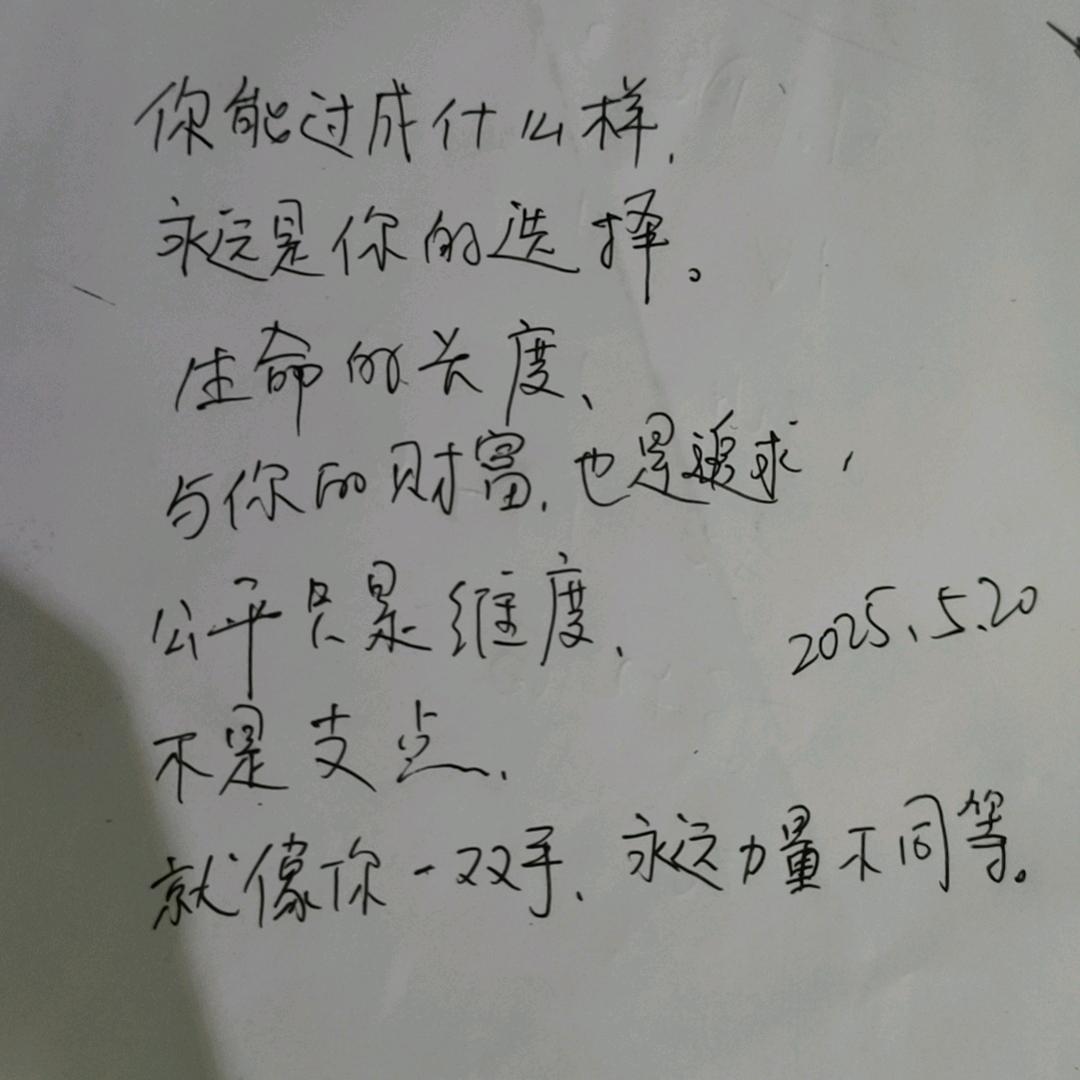 你能过成什么样，
永远是你的选择。
生命的长度、
与你的财富，也是追求，
公平只是维度，
2025、5.20
不是支点，
就像你一双手，永远力量不同等。